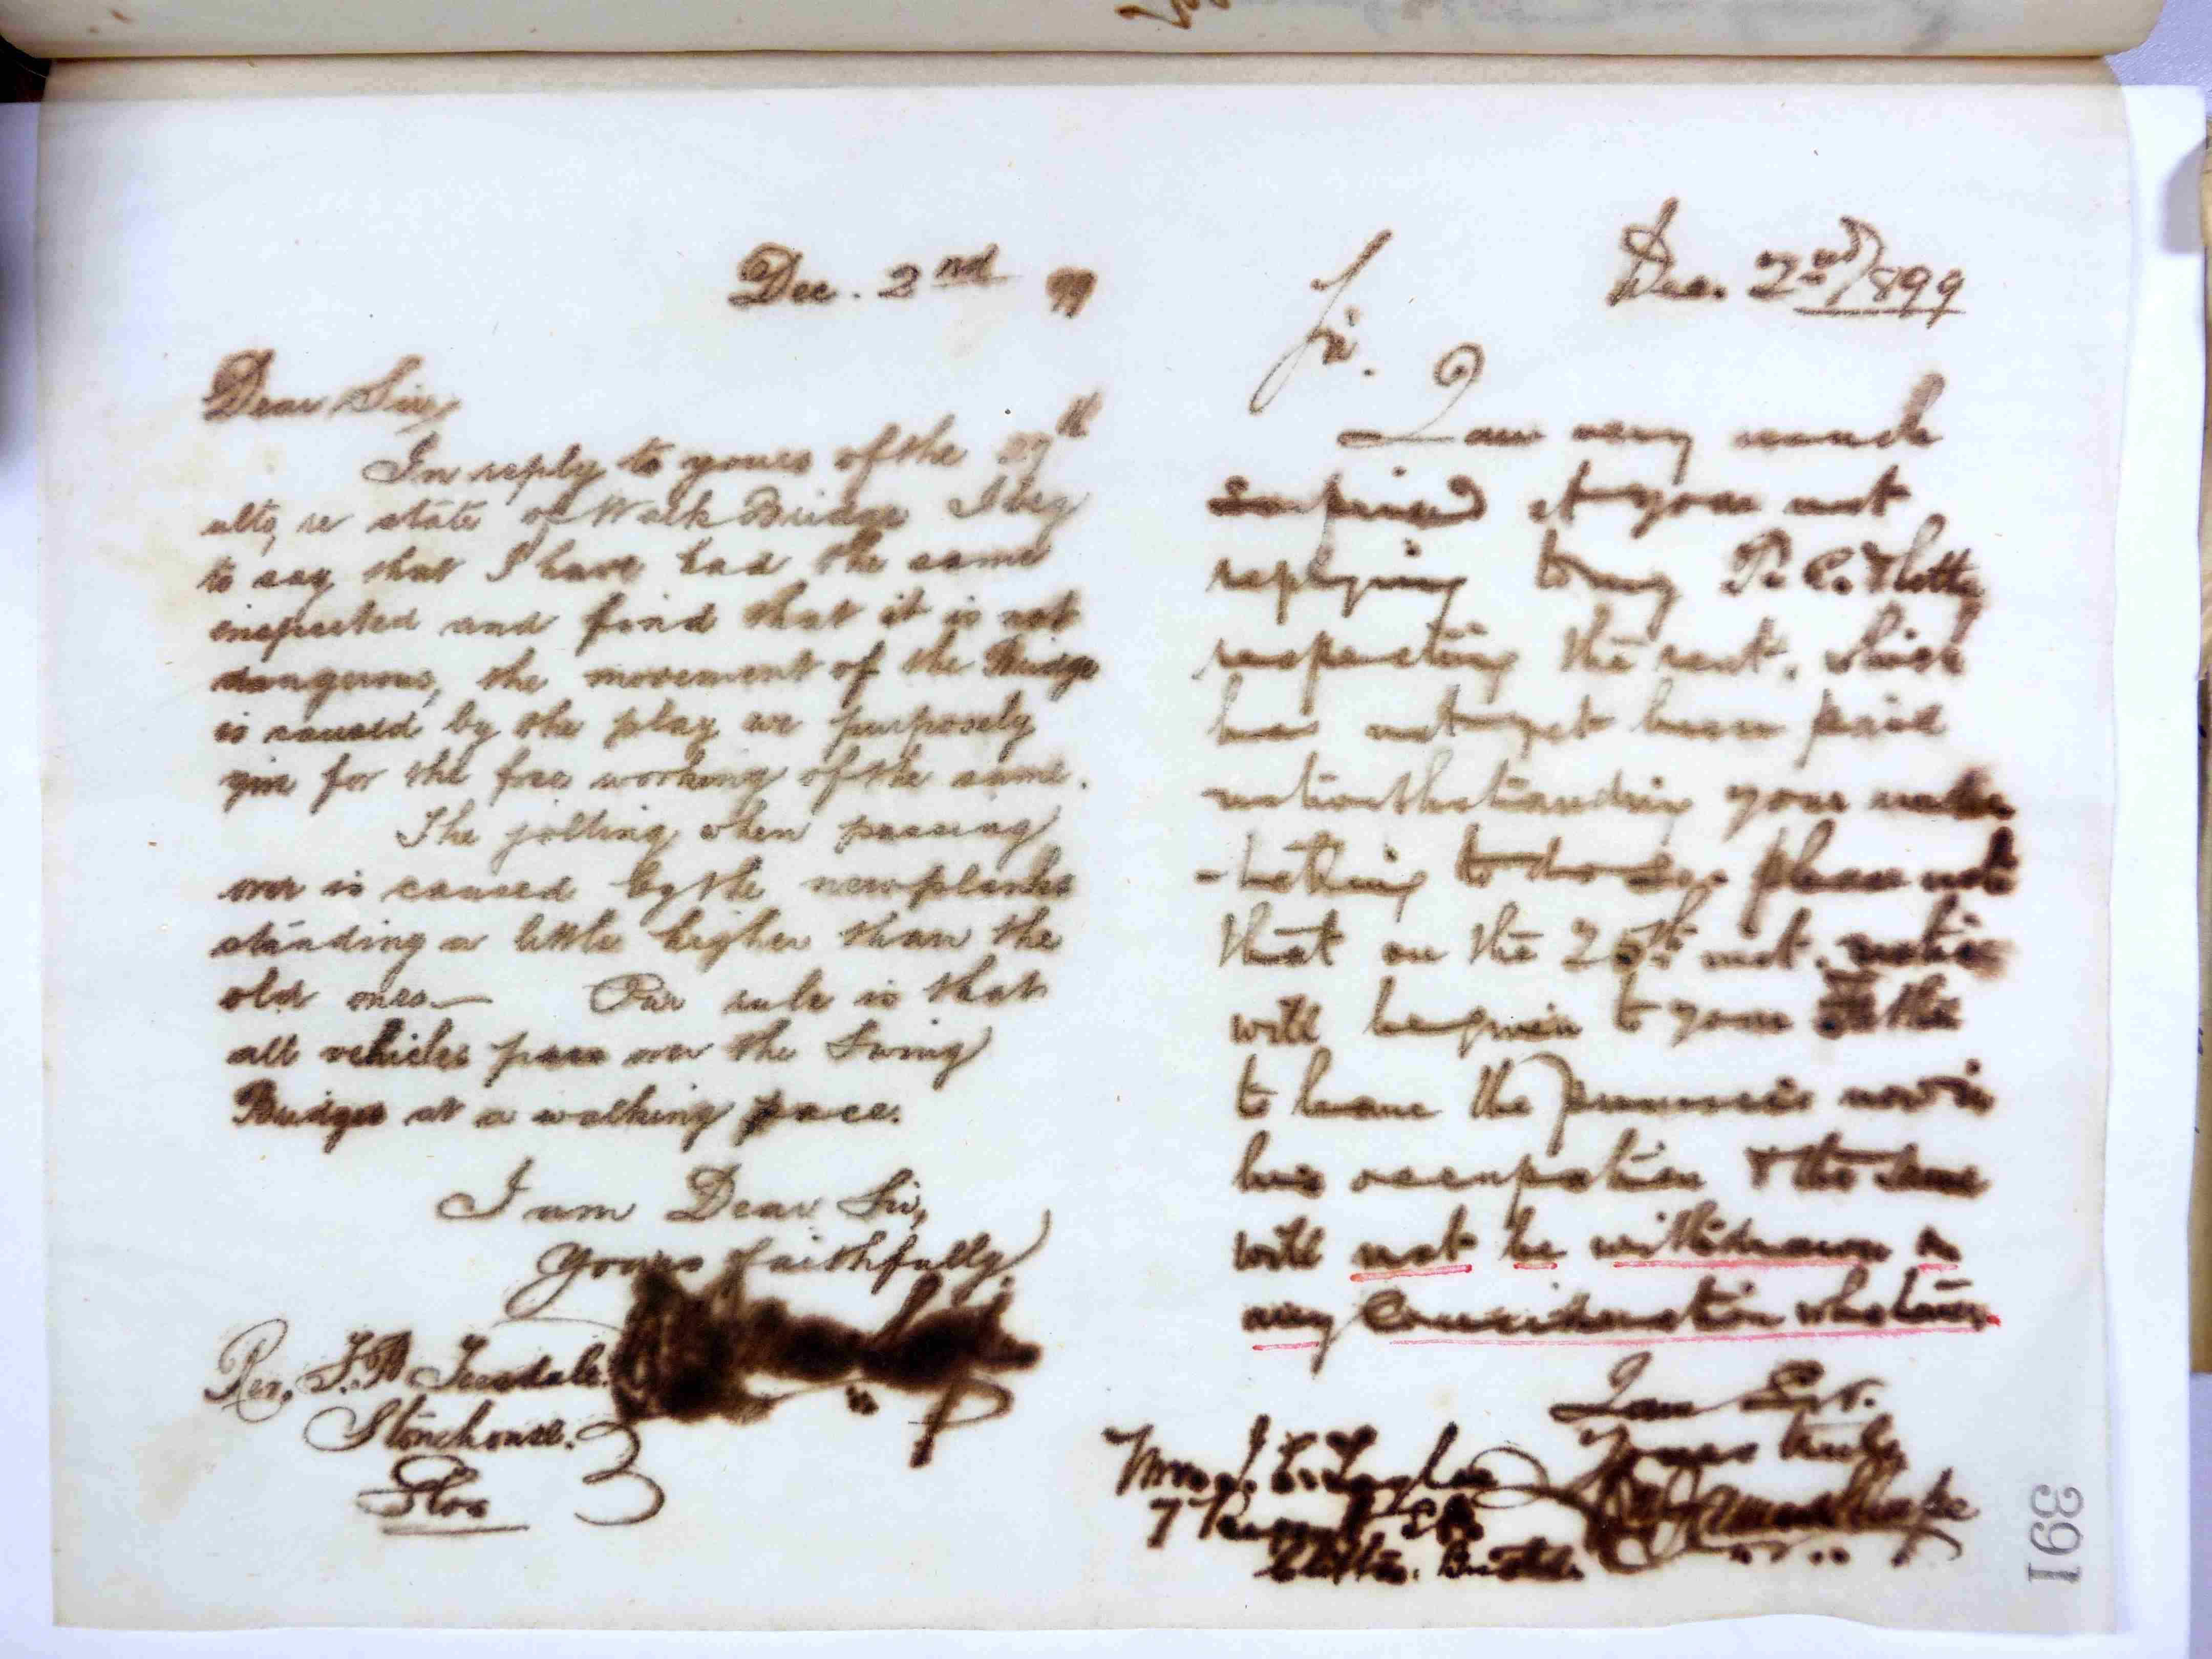 Dec. 2nd 99
Dear Sir,
In reply to yours of the 29th
ulto, re state of Walk Bridge I beg
to say that I have had the same
inspected and find that it is not
dangerous, the movement of the Bridge
is caused by the play we purposely
give for the free working of the same.
The jolting when passing
over is caused by the new planks
standing a little higher than the
old ones — Our rule is that
all vehicles pass over the Swing
Bridges at a walking pace.
I am Dear Sir,
Yours faithfully
Rev. F. B. Teesdale.
Stonehouse.
Glos
Dec. 2nd/1899
Sir.
I am very much
surprised at your not
replying to my P. C. &
respecting the rent, which
has not yet been paid
notwithstanding your
to do so please note
that on the 25th inst. notice
will be given to your
to leave the premises now in
his occupation & the same
will not be withdrawn on
any Consideration whatever.
I am Sir.
Yours truly
7
Clifton. Bristol.
391